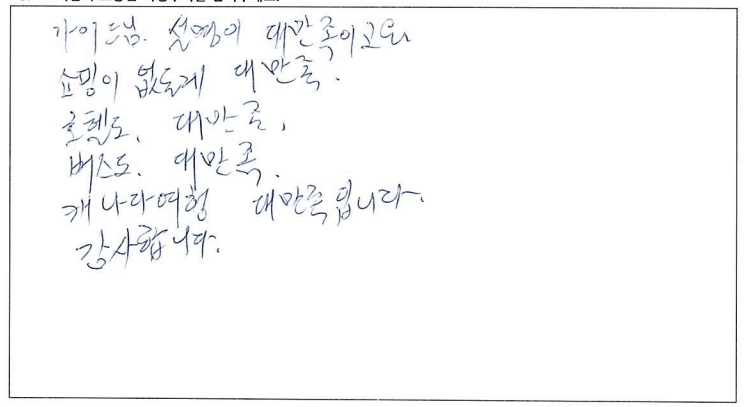 가이드님. 설명이 대만족이고요
쇼핑이 없는게 대만족.
호텔도. 대만족.
버스도. 대만족.
캐나다여행 대만족입니다.
감사합니다.